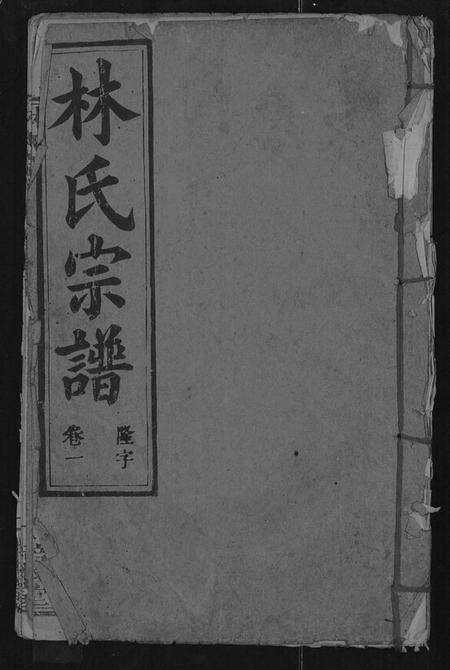 林氏宗譜
隆字
卷一